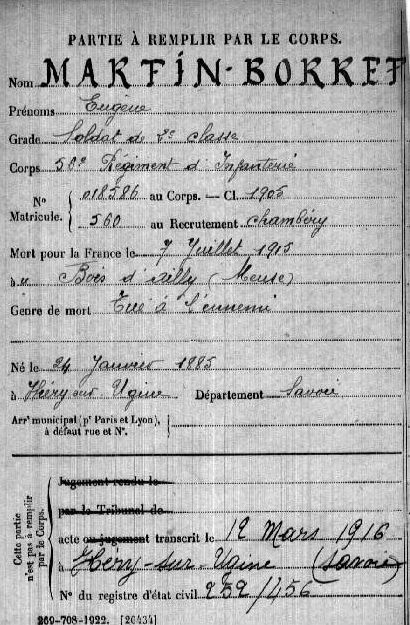 PARTIE À REMPLIR PAR LE CORPS.
Nom MARTIN-BORRET
Prénoms Eugène
Grade Soldat de 2e classe
Corps 56e Régiment d'Infanterie
N° Matricule. { 018586 au Corps. — Cl. 1905
560 au Recrutement Chambéry
Mort pour la France le 7 Juillet 1915
à Bois d'ailly (Meuse)
Genre de mort Tué à l'ennemi
Né le 24 Janvier 1885
à Héry sur Ugine Département Savoie
Arrt municipal (pr Paris et Lyon),
à défaut rue et N°.
Cette partie n'est pas à remplir par le Corps.
Jugement rendu le
par le Tribunal de
acte ou jugement transcrit le 12 Mars 1916
à Héry-sur-Ugine (Savoie)
N° du registre d'état civil 252/456
269-708-1922. [26434]